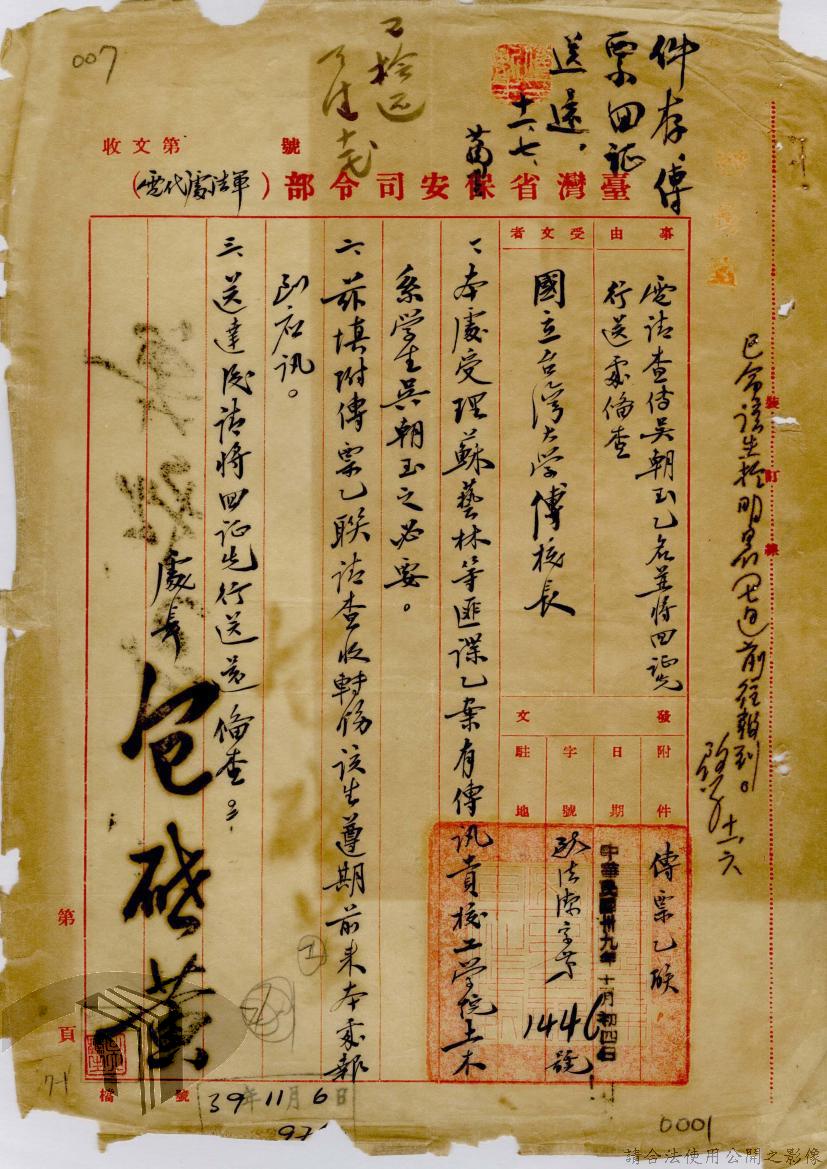 007
件存傳
票回証
送還,
十一、七、
收文第 號
臺灣省保安司令部(軍法處代電)
事由
電請查傳吳朝玉乙名並將回証先
行送處俻查
受文者
國立台灣大学傅校長
發文
附件
傳票乙联
日期
中華民國卅九年十一月初四日
字號
1446號
駐地
一、本處受理蘇藝林等匪諜乙案有傳訊貴校工学院土木
系学生吳朝玉之必要。
二、茲填附傳票乙联請查收轉飭該生遵期前来本處報
到应訊。
三、送達后請將回証先行送還俻查。
處長 包啟黃
裝訂線
已令該生於明晨 前往報到。
十一、六
第 頁
檔 號
39年11月6日
71
0001
請合法使用公開之影像